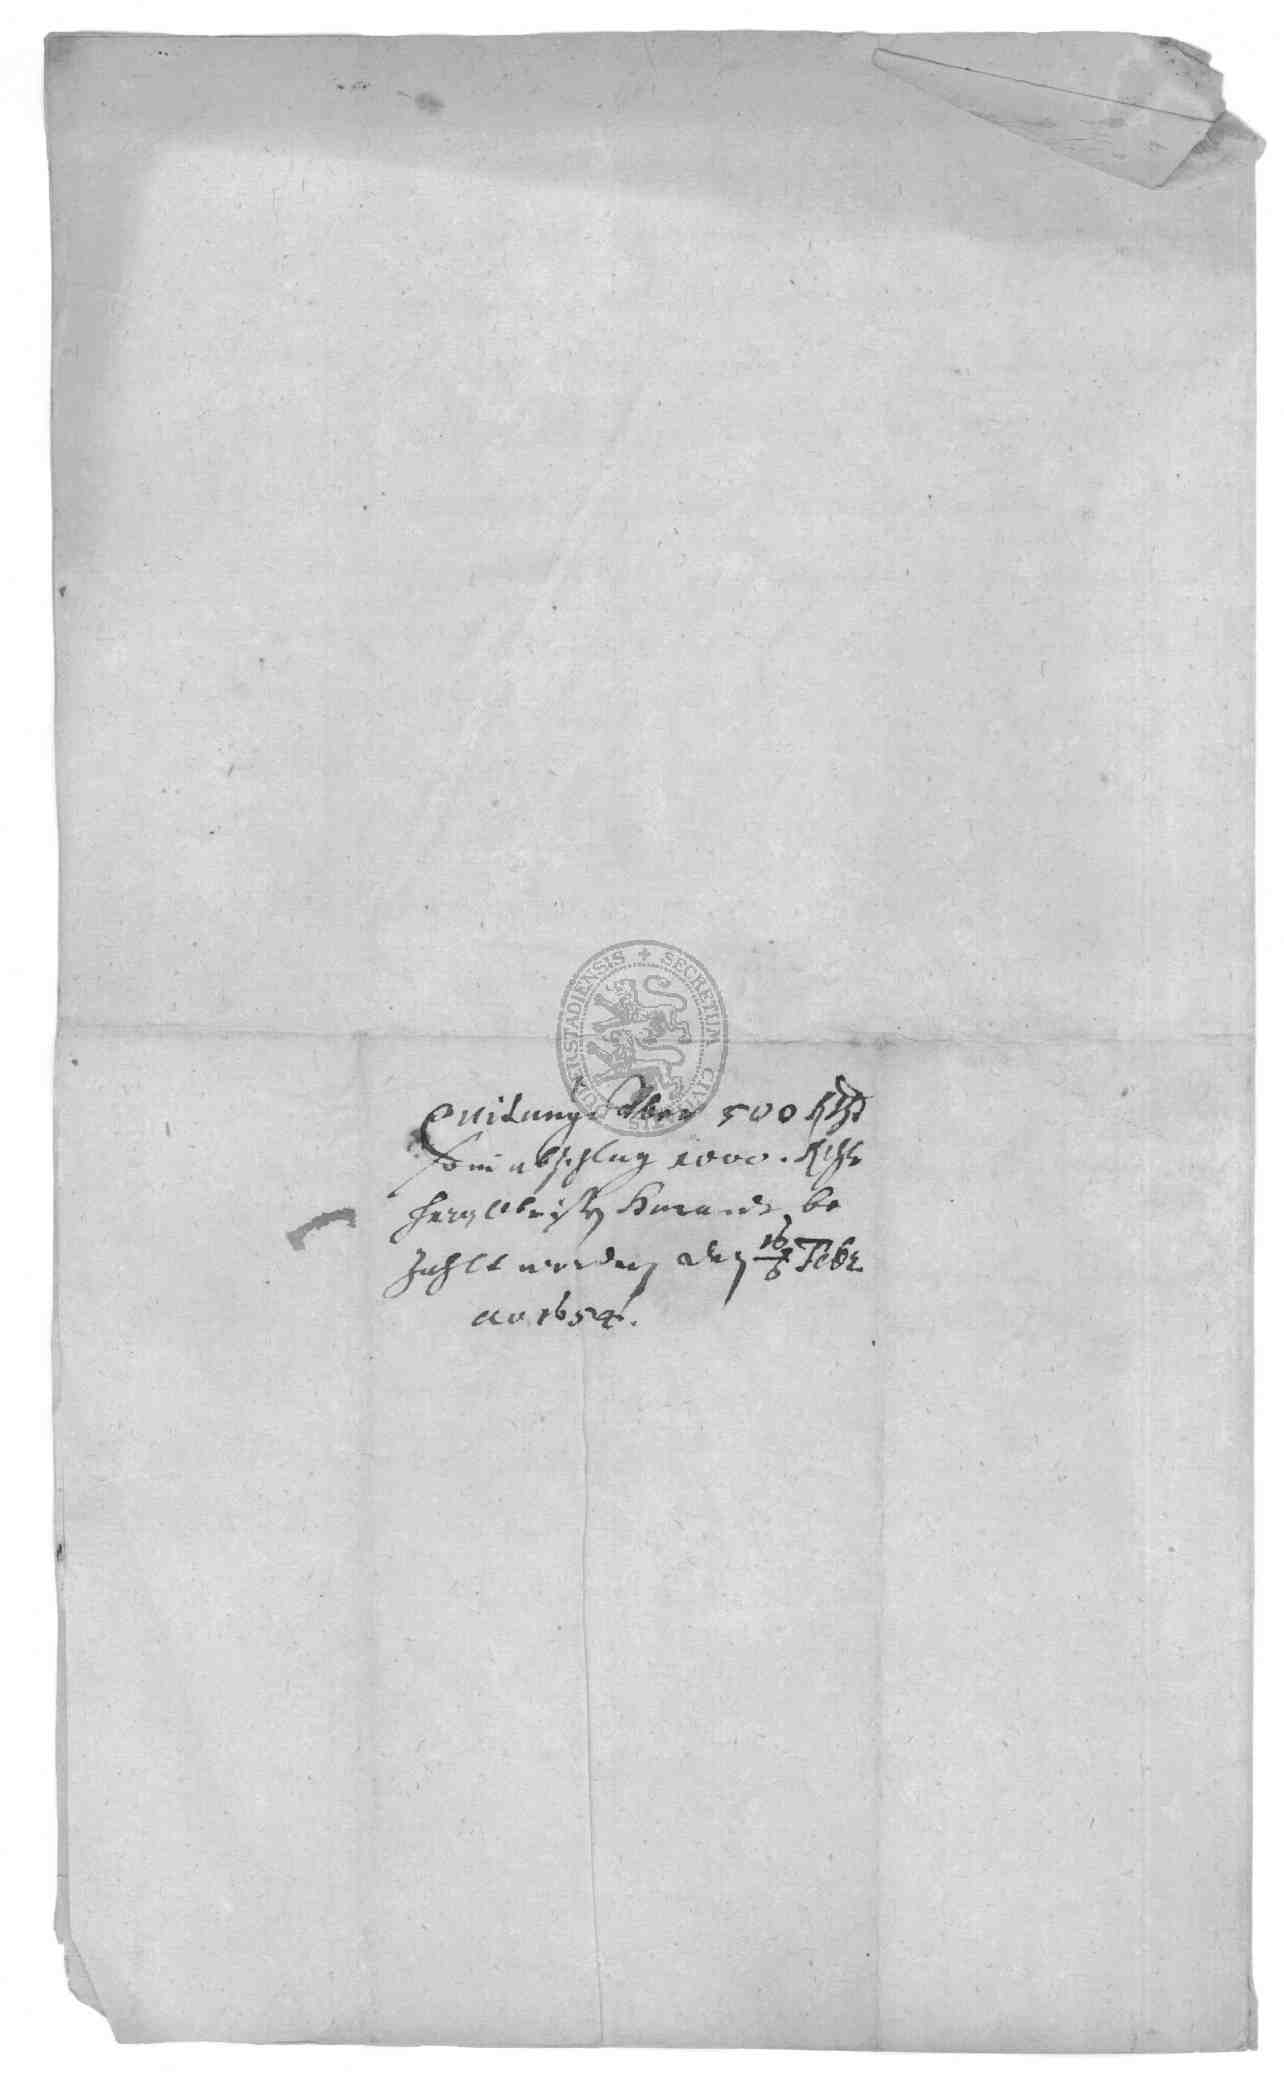 SECRETUM CIVI
ERSTADIENSIS
Quitung über 500 Rthl
so in abschlag 1000. Rthlr
herrn Obristen be
zahlt worden den 16/6 Febr
ao 1654.